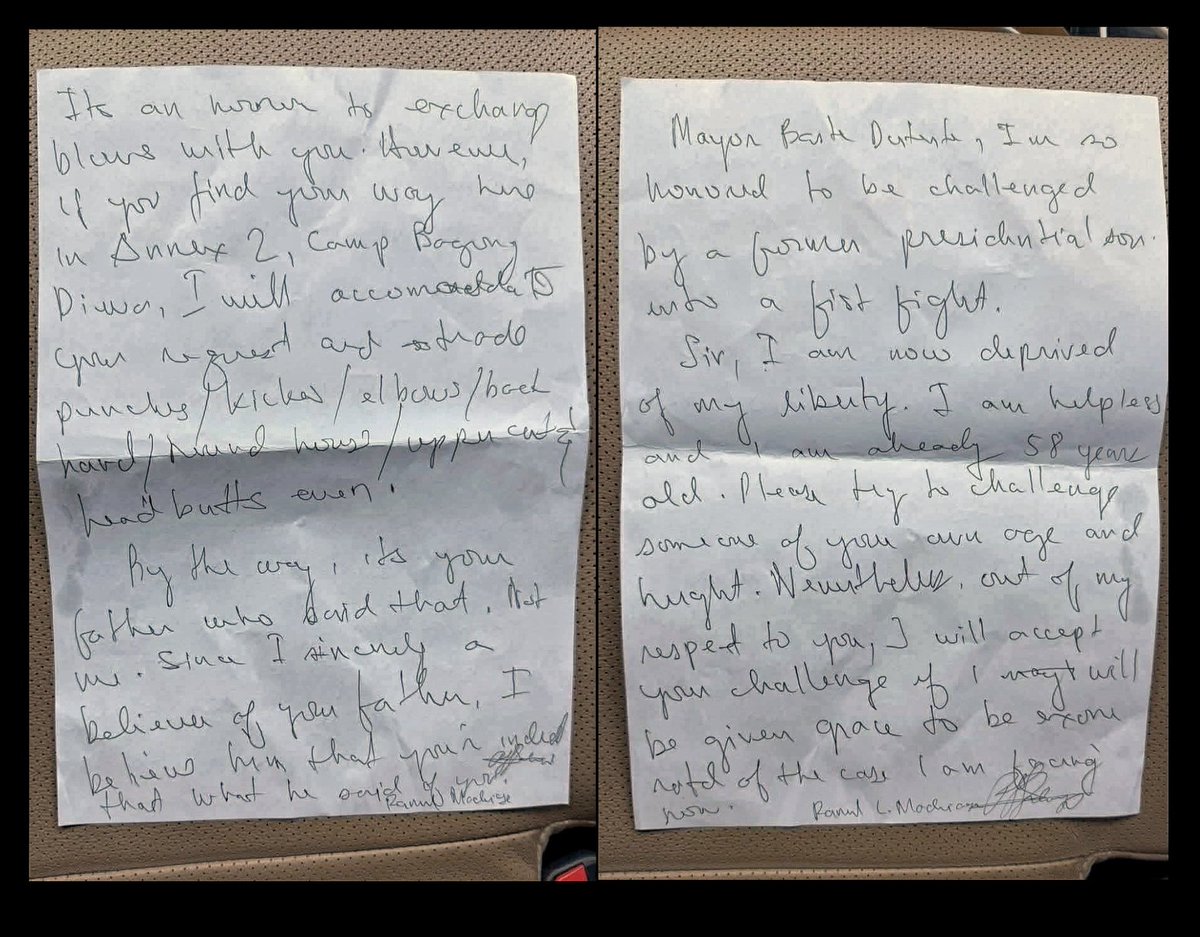 Its an honor to exchang
blows with you. However,
if you find your way here
in Annex 2, Camp Bagong
Diwa, I will accomodate
your request and trade
punches/kicks/elbows/back
hand/round house/uppercuts/
head butts even.
By the way, its your
father who said that. Not
me. Since I sincerely a
believer of your father, I
believe him that you're indeed
that what he said of you.
Mayor Baste Duterte, I'm so
honored to be challenged
by a former presidential son
into a fist fight.
Sir, I am now deprived
of my liberty. I am helpless
and I am already 58 years
old. Please try to challenge
someone of your own age and
height. Nevertheless, out of my
respect to you, I will accept
your challenge if I will
be given grace to be exone
rated of the case I am facing
now.